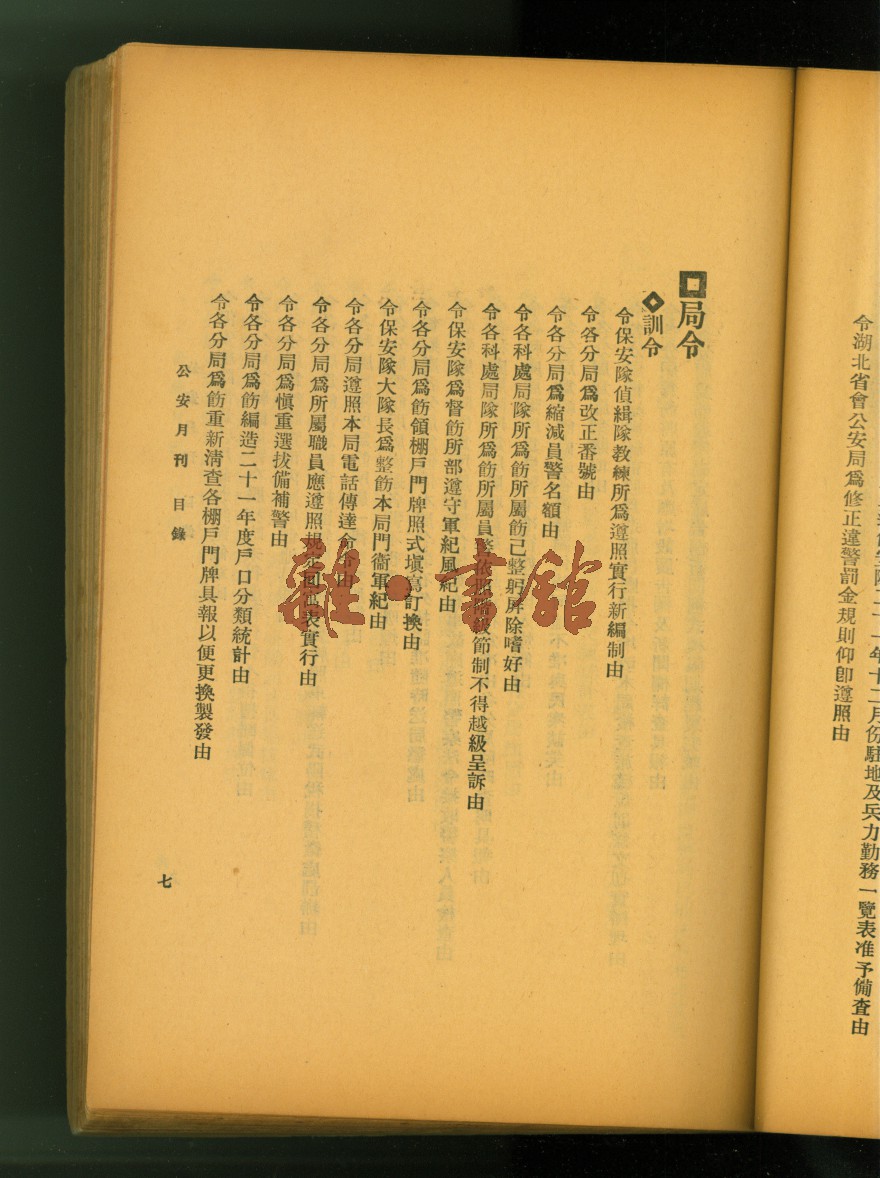 年十二月份駐地及兵力勤務一覽表准予備査由
令湖北省會公安局爲修正違警罰金規則仰卽遵照由
局令
訓令
令保安隊偵緝隊教練所爲遵照實行新編制由
令各分局爲改正番號由
令各分局爲縮減員警名額由
令各科處局隊所爲飭所屬飭己整躬屏除嗜好由
令各科處局隊所爲飭所屬員警依照階級節制不得越級呈訴由
令保安隊爲督飭所部遵守軍紀風紀由
令各分局爲飭領棚戶門牌照式塡寫訂換由
令保安隊大隊長爲整飭本局門衞軍紀由
令各分局遵照本局電話傳達命令由
令各分局爲所屬職員應遵照規定表實行由
令各分局爲愼重選拔備補警由
令各分局爲飭編造二十一年度戶口分類統計由
令各分局爲飭重新淸查各棚戶門牌具報以便更換製發由
公安月刊 目錄
七
雜·書館